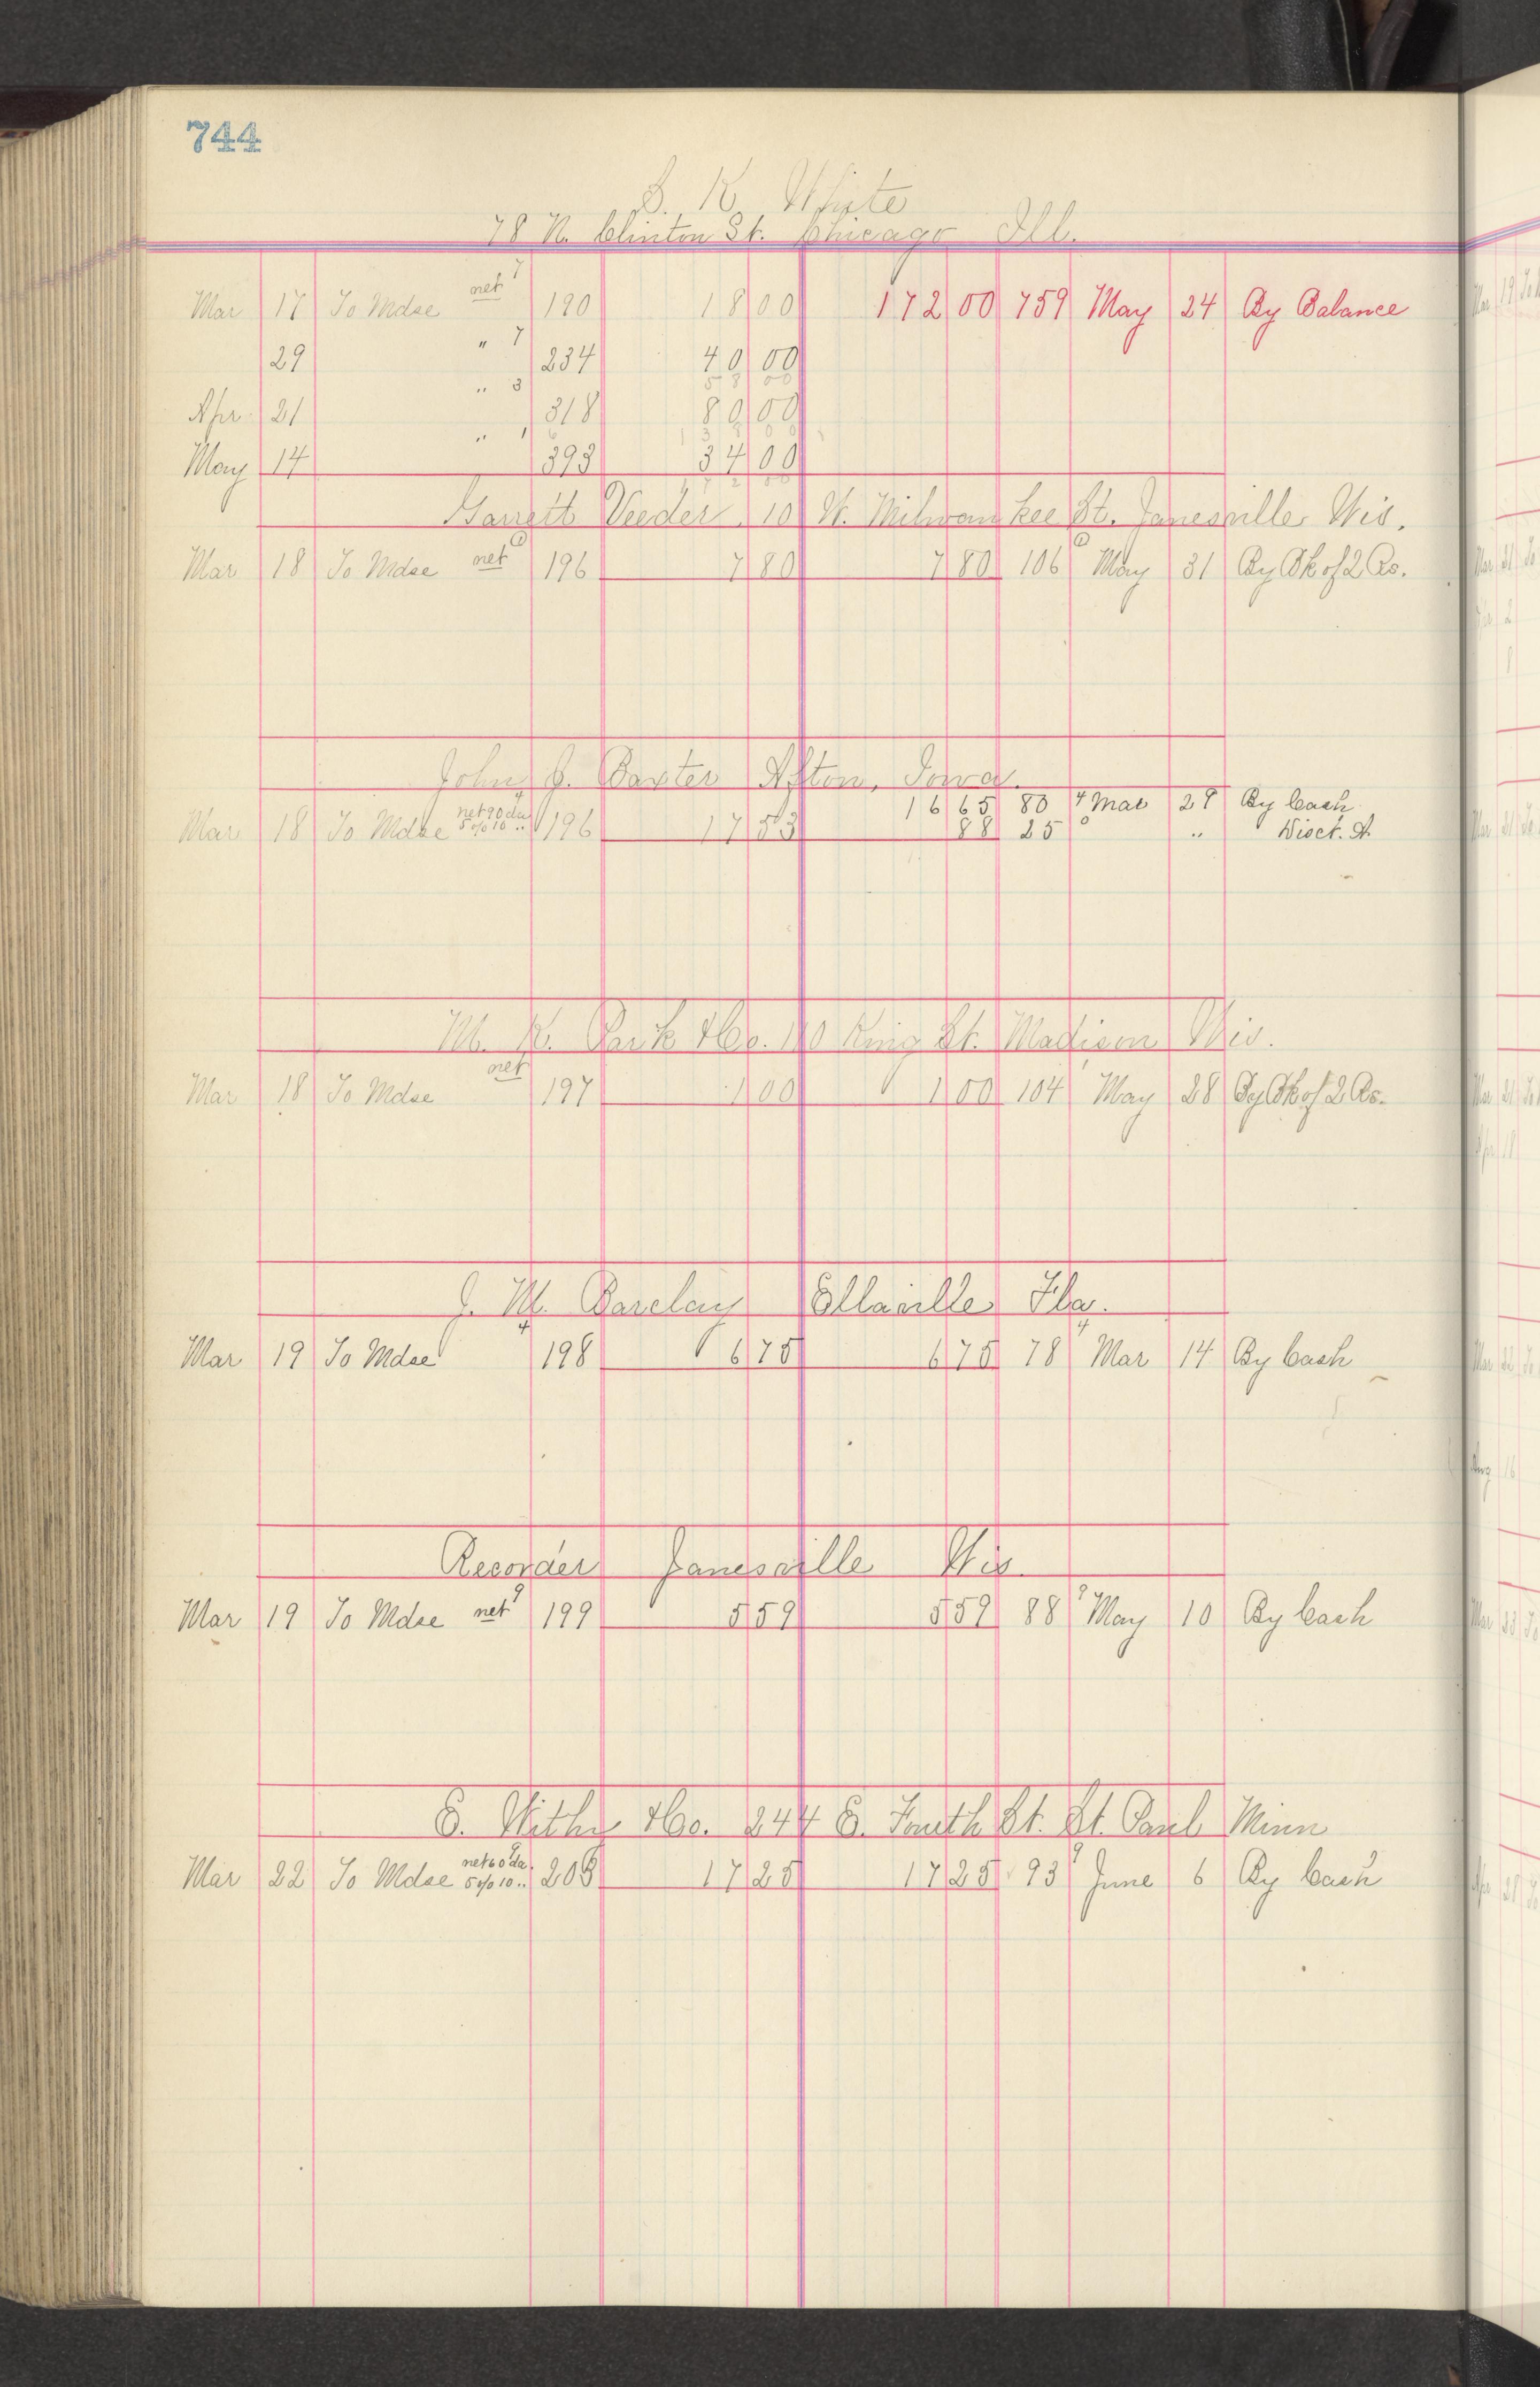 744
S. K. White
78 N. Clinton St. Chicago Ill.
Mar 17 To Mdse net 7 190 18 00 172 00 759 May 24 By Balance
29 " 7 234 40 00
58 00
Apr 21 " 3 318 80 00
138 00
May 14 " 1 393 34 00
172 00
Garrett Veeder 10 W. Milwaukee St. Janesville Wis.
Mar 18 To Mdse net 196 7 80 7 80 106 May 31 By Bk of 2 Rs.
John J. Baxter Afton, Iowa.
Mar 18 To Mdse net 90 da 5% 10 " 196 17 53 16 65 80 4 Mar 29 By Cash
88 25 " Disct. A.
M. K. Park & Co. 110 King St. Madison Wis.
Mar 18 To Mdse net 197 1 00 1 00 104 May 28 By Bk of 2 Rs.
J. M. Barclay Ellaville Fla.
Mar 19 To Mdse 4 198 6 75 6 75 78 4 Mar 14 By Cash
Recorder Janesville Wis.
Mar 19 To Mdse net 9 199 5 59 5 59 88 9 May 10 By Cash
E. Withy & Co. 244 E. Fourth St. St. Paul Minn
Mar 22 To Mdse net 60 da. 5% 10 " 208 17 25 17 25 93 9 June 6 By Cash